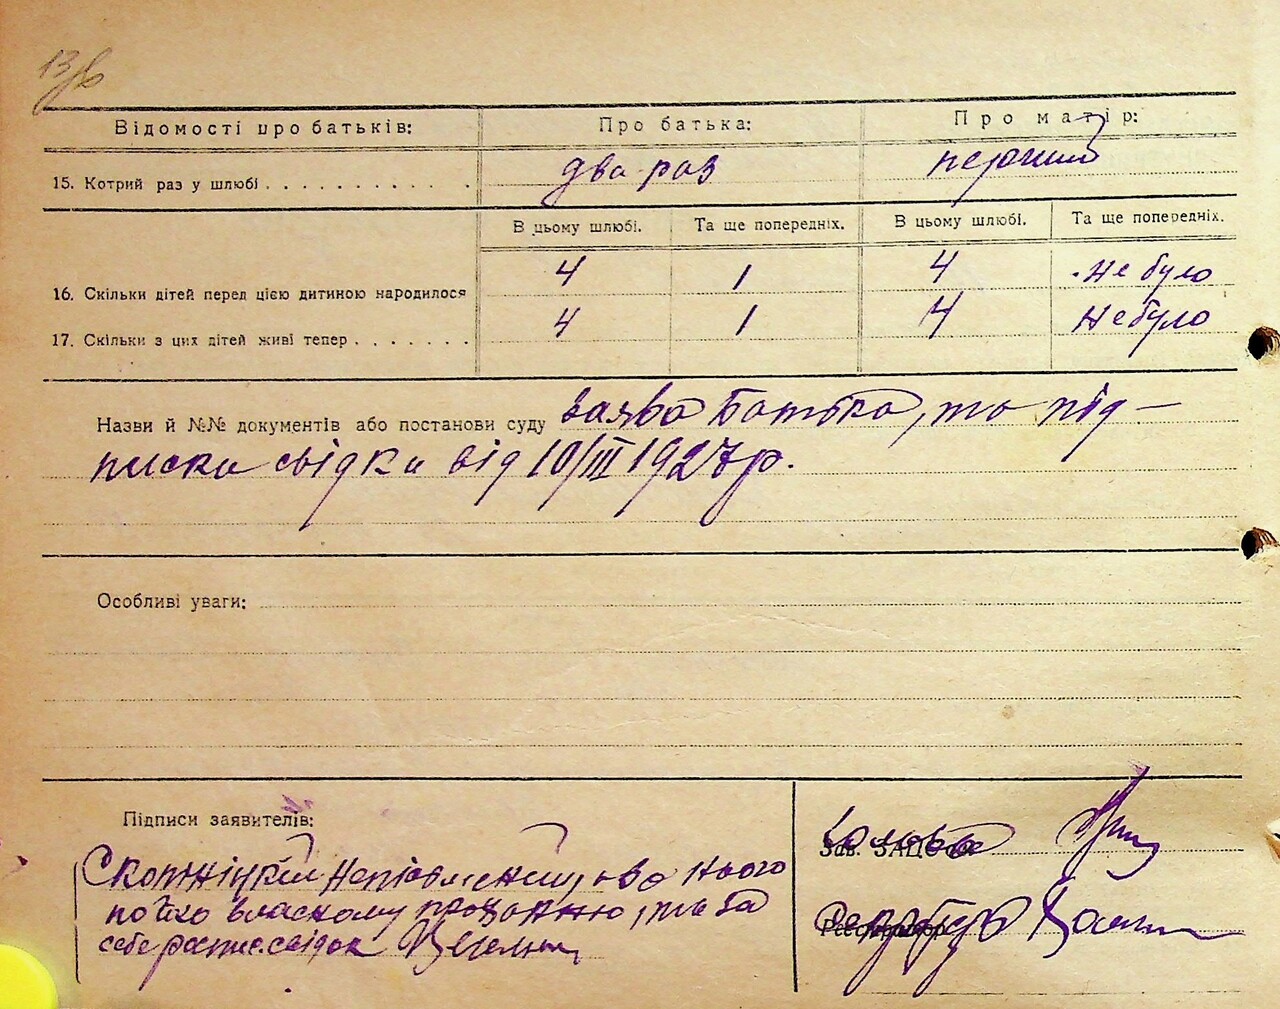 13зв
Відомості про батьків: Про батька: Про матір:
15. Котрий раз у шлюбі два раз перший
В цьому шлюбі. Та ще попередніх. В цьому шлюбі. Та ще попередніх.
16. Скільки дітей перед цією дитиною народилося 4 1 4 не було
17. Скільки з цих дітей живі тепер 4 1 4 не було
Назви й №№ документів або постанови суду заява батька, та під-
писка свідка від 10/III 1927 р.
Особливі уваги:
Підписи заявителів:
Зав. ЗАГС'ом
Скотніцкій неписменний, а за нього
по його власному проханню, та за
Реєстратор
себе роспис. свідок